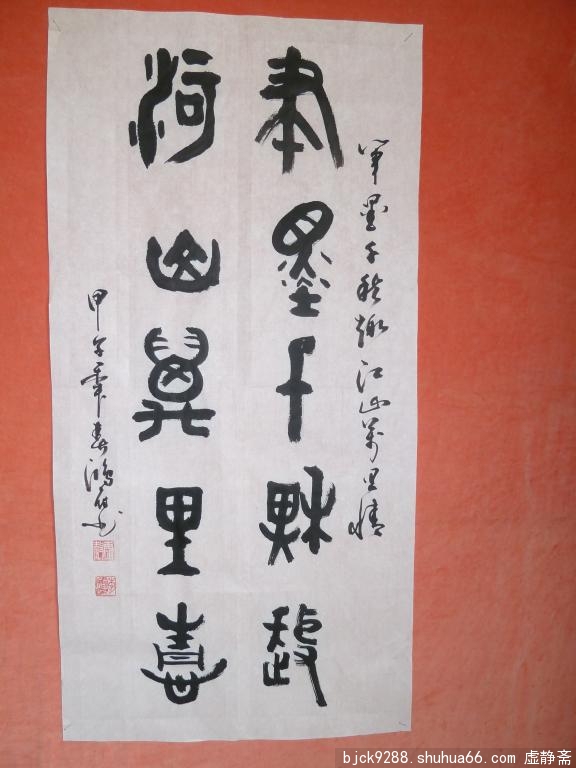 笔墨千秋趣江山萬里情
聿墨千秋趣
河山萬里情
甲午年春鴻
bjck9288.shuhua66.com 虚静斋